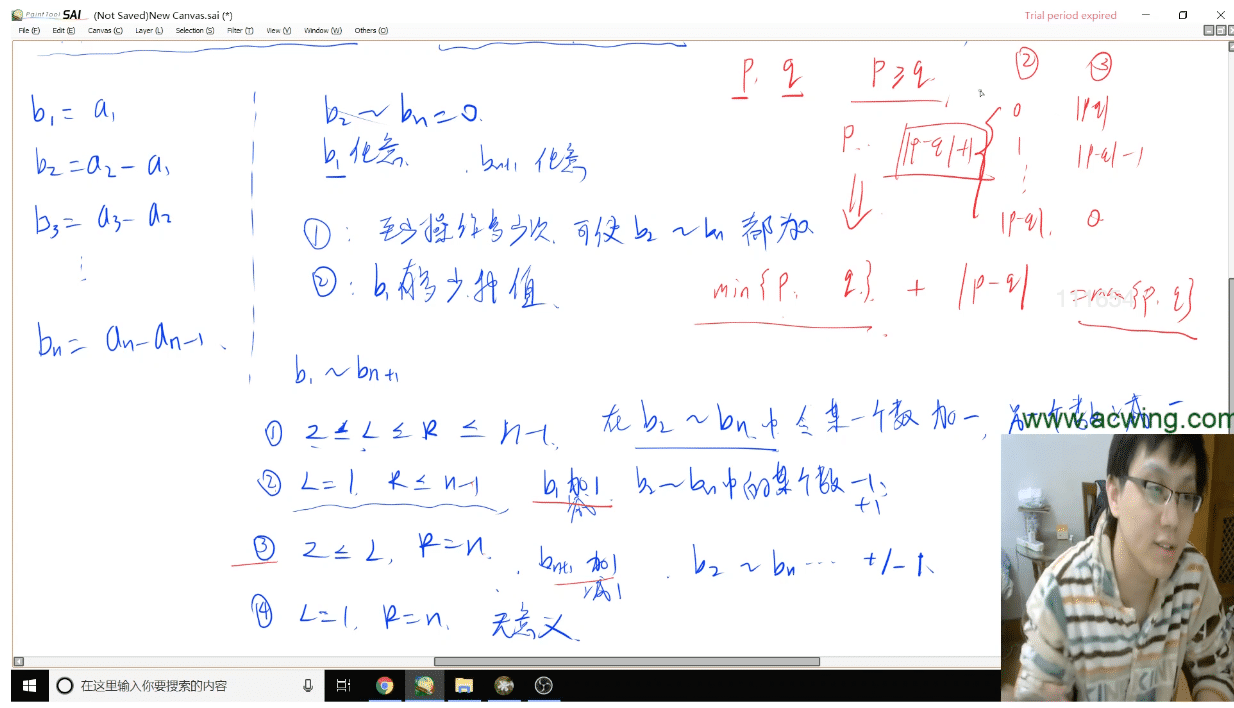 PaintTool SAI (Not Saved)New Canvas.sai (*)
Trial period expired
File (F) Edit (E) Canvas (C) Layer (L) Selection (S) Filter (T) View (V) Window (W) Others (O)
b₁ = a₁
b₂ = a₂ - a₁
b₃ = a₃ - a₂
⋮
bₙ = aₙ - aₙ₋₁.
b₂ ~ bₙ = 0.
b₁ 任意. bₙ₊₁ 任意
①: 至少操作多少次, 可使 b₂ ~ bₙ 都为
②: b₁ 有多少种值.
b₁ ~ bₙ₊₁
① 2 ≤ L ≤ R ≤ n-1. 在 b₂ ~ bₙ 中 令 某一个数 加一,
② L=1, R ≤ n-1 b₁ 加1 b₂ ~ bₙ 中的某个数 -1;
减 +1;
③ 2 ≤ L, R=n. bₙ₊₁ 加1. b₂ ~ bₙ … +/-1.
减1
④ L=1, R=n. 无意义.
p. q p ≥ q. ② ③
p. ||p-q|+1| 0 |p-q|
1 |p-q|-1
⋮
|p-q|. 0
min{p. q.} + |p-q| = max{p, q}
www.acwing.com
在这里输入你要搜索的内容